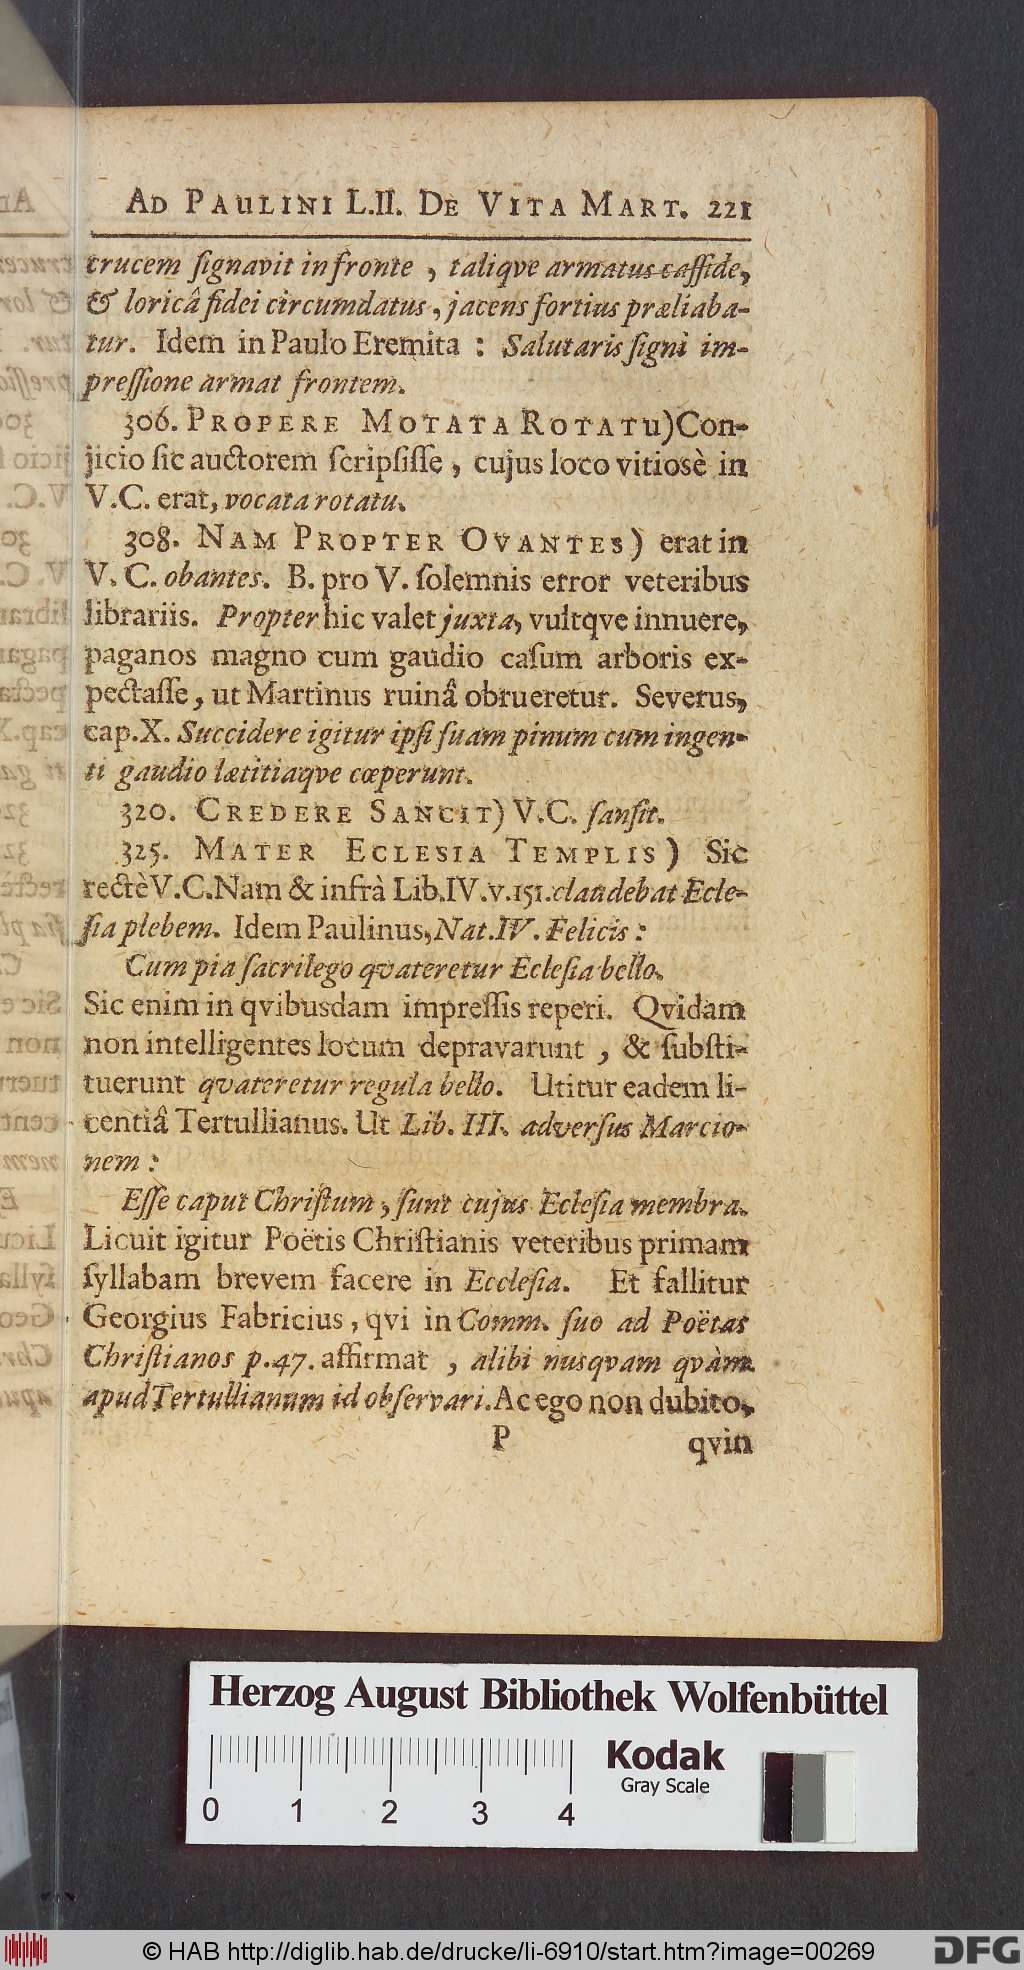 AD PAULINI L.II. DE VITA MART. 221
crucem ſignavit in fronte, taliqve armatus caſſide,
& loricâ fidei circumdatus, jacens fortius præliaba-
tur. Idem in Paulo Eremita: Salutaris ſigni im-
preſſione armat frontem.
306. PROPERE MOTATA ROTATu) Con-
jicio ſic auctorem ſcripſiſſe, cujus loco vitiosè in
V.C. erat, vocata rotatu.
308. NAM PROPTER OVANTES) erat in
V. C. obantes. B. pro V. ſolemnis error veteribus
librariis. Propter hic valet juxta, vultqve innuere,
paganos magno cum gaudio caſum arboris ex-
pectaſſe, ut Martinus ruinâ obrueretur. Severus,
cap.X. Succidere igitur ipſi ſuam pinum cum ingen-
ti gaudio lætitiaqve cœperunt.
320. CREDERE SANCIT) V.C. ſanſit.
325. MATER ECLESIA TEMPLIS) Sic
rectè V.C. Nam & infrà Lib.IV.v.151. claudebat Ecle-
ſia plebem. Idem Paulinus, Nat.IV. Felicis:
Cum pia ſacrilego qvateretur Ecleſia bello.
Sic enim in qvibusdam impreſſis reperi. Qvidam
non intelligentes locum depravarunt, & ſubſti-
tuerunt qvateretur regula bello. Utitur eadem li-
centiâ Tertullianus. Ut Lib. III. adverſus Marcio-
nem:
Eſſe caput Chriſtum, ſunt cujus Ecleſia membra.
Licuit igitur Poëtis Chriſtianis veteribus primam
ſyllabam brevem facere in Eccleſia. Et fallitur
Georgius Fabricius, qvi in Comm. ſuo ad Poëtas
Chriſtianos p.47. affirmat, alibi nusqvam qvàm
apud Tertullianum id obſervari. Ac ego non dubito,
P qvin
Herzog August Bibliothek Wolfenbüttel
Kodak
Gray Scale
0 1 2 3 4
© HAB http://diglib.hab.de/drucke/li-6910/start.htm?image=00269
DFG